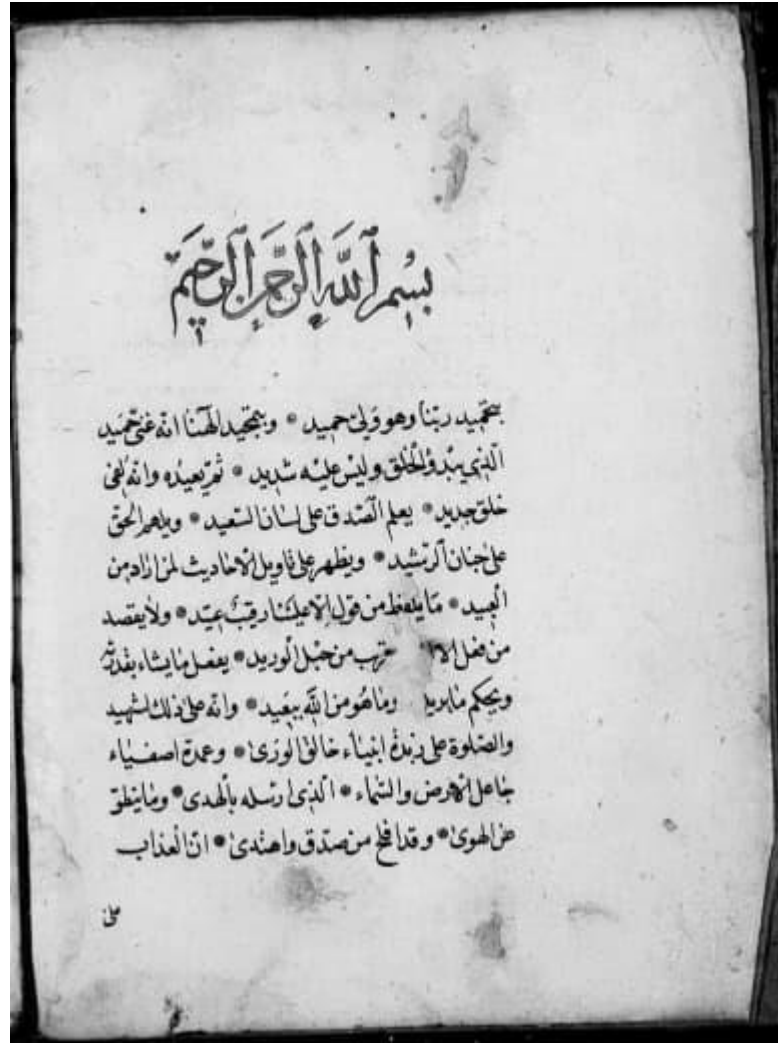 بِسْمِ ٱللّٰهِ ٱلرَّحْمٰنِ ٱلرَّحِيمِ
بتحميد ربنا وهو ولىّ حميد * وبتمجيد الٰهنا انّه غنىّ حميد
الّذى يبدؤ الخلق وليس عليه شديد * ثمّ يعيده وانّه لفى
خلق جديد * يعلم الصّدق على لسان السّعيد * ويلهم الحقّ
على جنان الرّشيد * ويظهر على تاويل الاحاديث لمن اراد من
العبيد * ما يلفظ من قول الا علينا رقيب عتيد * ولا يقصد
من فعل الا من حبل الوريد * يفعل ما يشاء بقدرته
ويحكم ما يريد وما هو من اللّه ببعيد * وانّه على ذلك لشهيد
والصّلوة على زبدة انبياء خالق الورىٰ * وعمدة اصفياء
جاعل الارض والسّماء * الّذى ارسله بالهدى * وما ينطق
عن الهوىٰ * وقد افلح من صدّق واهتدىٰ * انّ العذاب
علىٰ